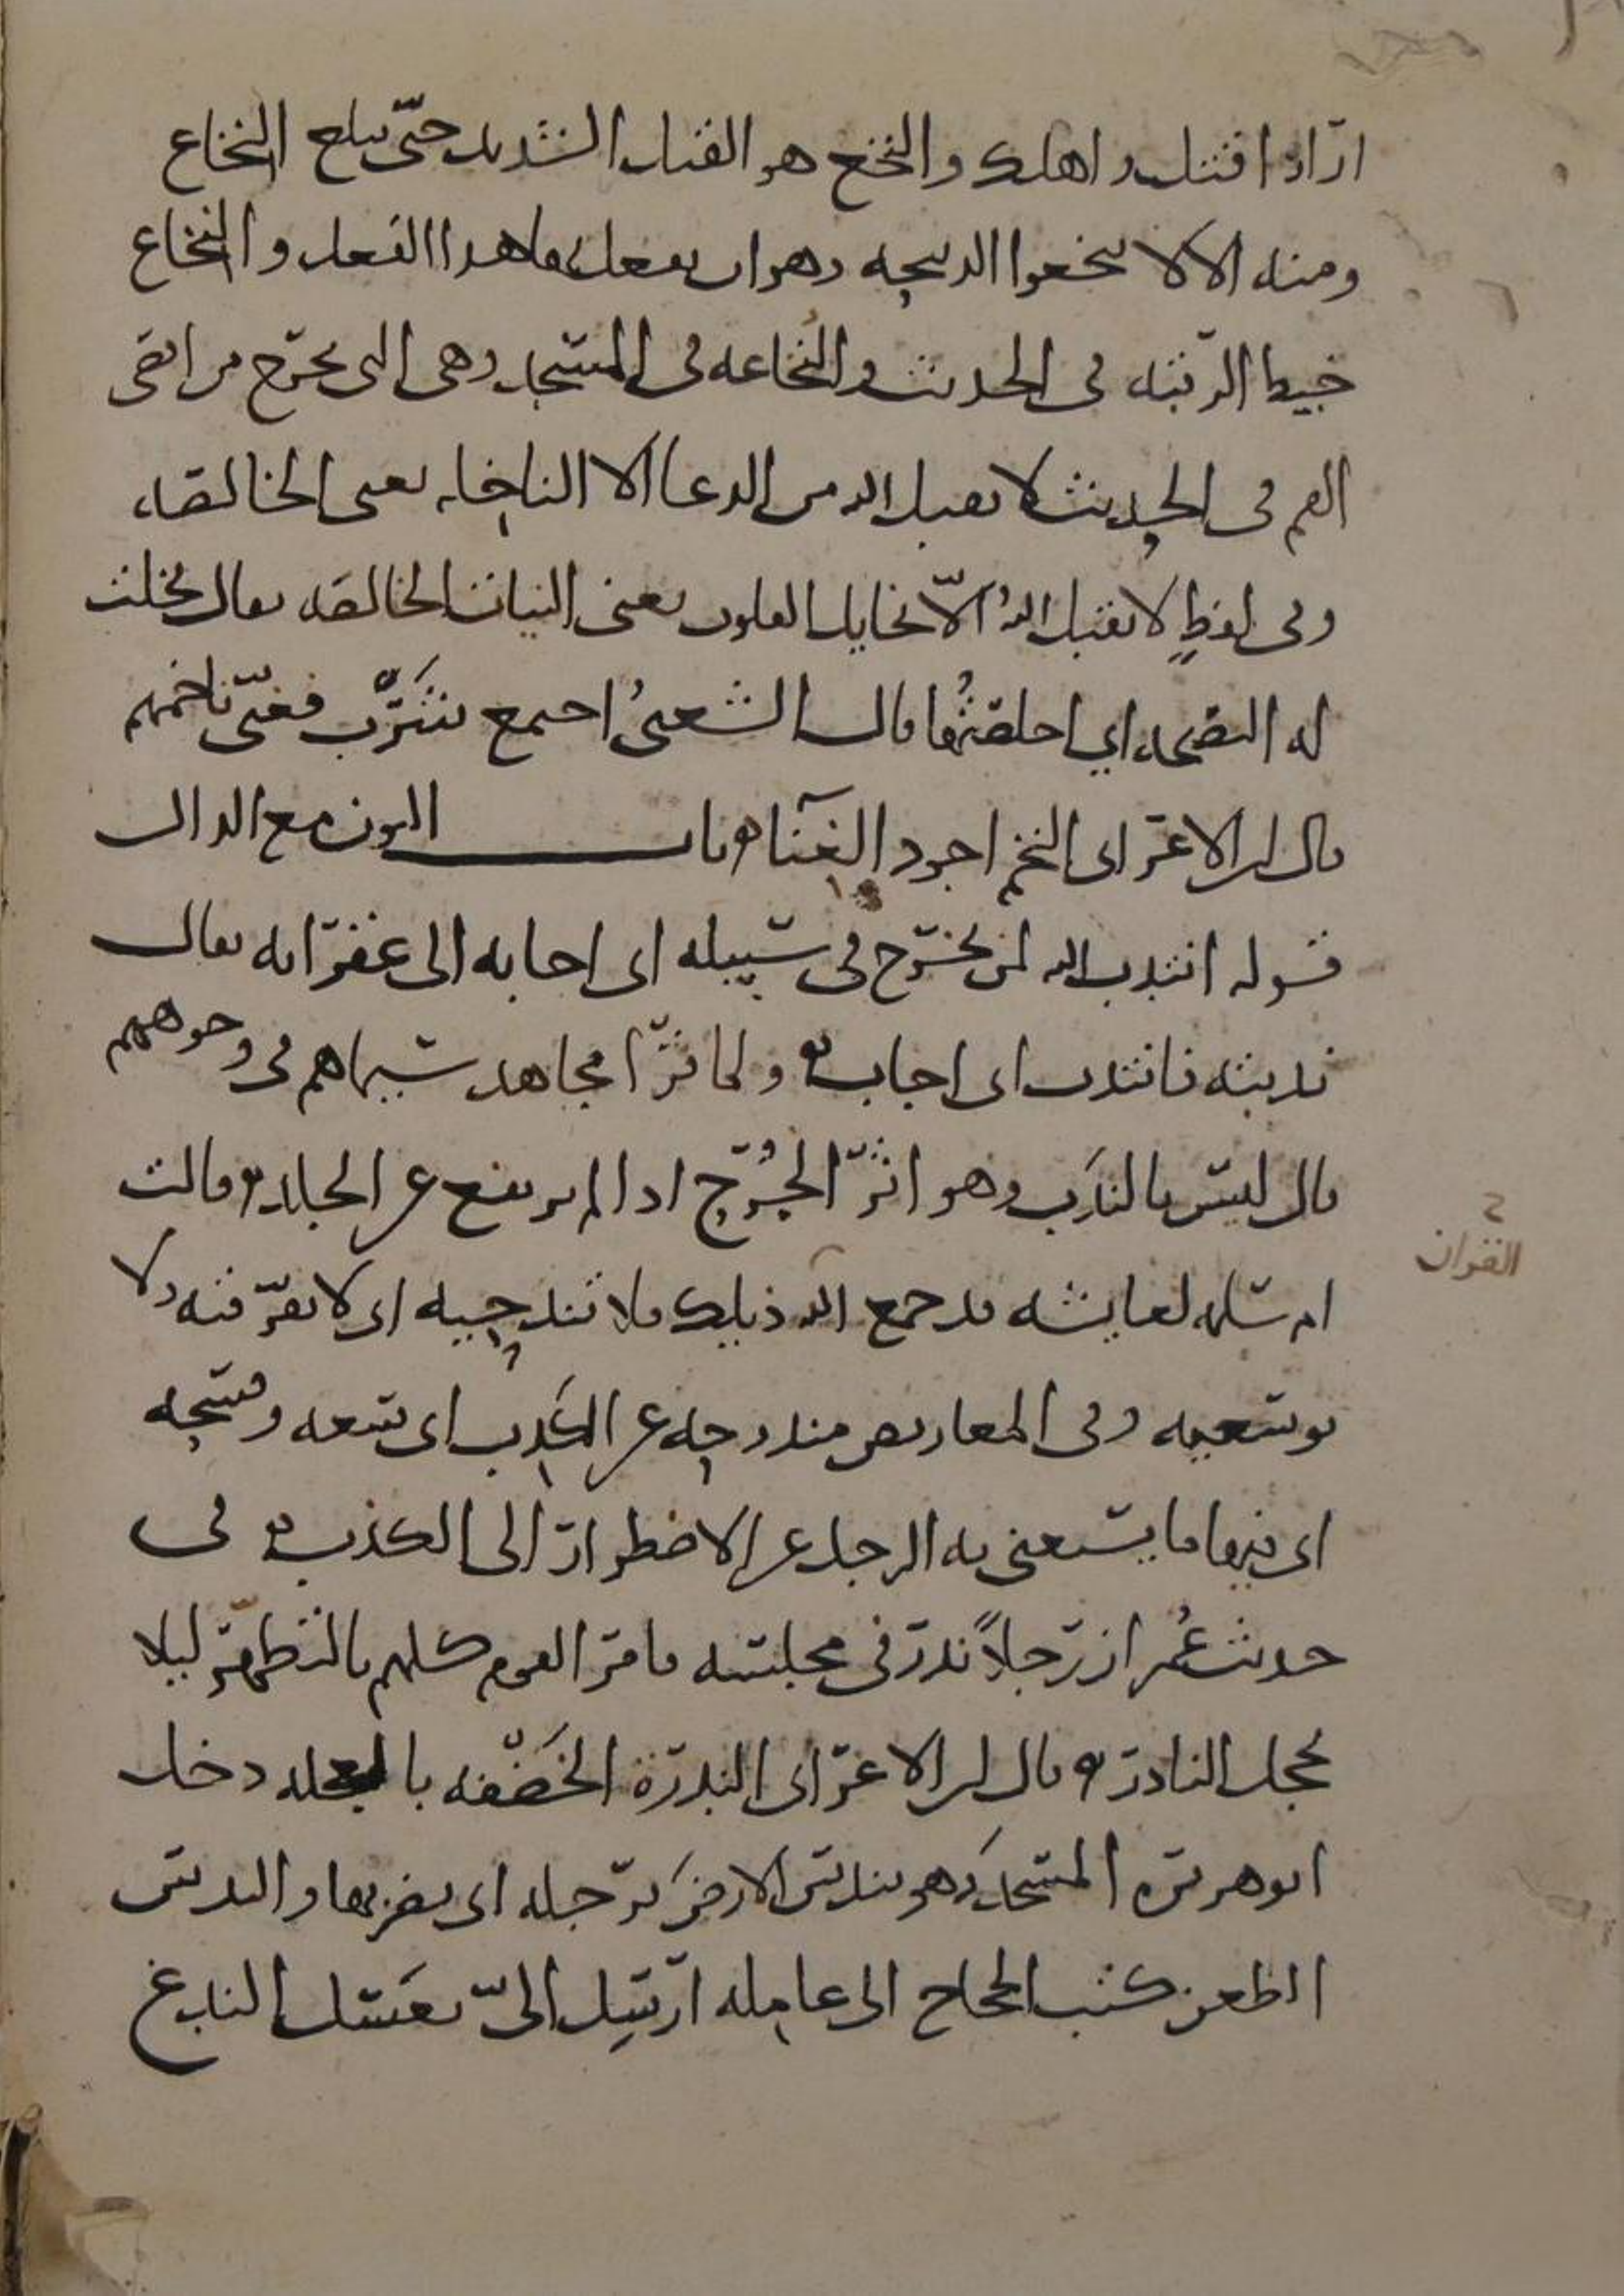 اراد اقتل واهلك والنخع هو القتل الشديد حتى يبلغ النخاع
ومنه الا لا تنخعوا الذبيحه وهو ان يفعل بها هذا الفعل والنخاع
خيط الرقبه في الحديث والنخاعه في المسجد وهي التي تخرج من اقصى
الفم في الحديث لا يقبل الله من الدعا الا الناخله يعني الخالصه
وفي لفظٍ لا يقبل اللهُ الّا نخايل القلوب يعني النيات الخالصه يقال نخلت
له النصيحه اي اخلصتُها قال الشعبيُ اجتمع شَرْبٌ فغنّى ناخمهم
قال ابن الاعرابي النخم اجود الغنآ ه باب النون مع الدال
قوله انتدب الله لمن يخرج في سبيله اي اجابه الى غفرانه يقال
ندبته فانتدب اي اجاب ه ولما قرا مجاهد سيماهم في وجوههم
قال ليس بالندَب وهو اثرُ الجُرح اذا لم يرتفع عن الجلد ه وقالت
ام سلمه لعايشه قد جمع الله ذيلك فلا تندحيه اي لا تفرقيه ولا
توسعيه وفي المعاريض مندوحه عن الكذب اي سعه وفسحه
اي فيها ما يستغني به الرجل عن الاضطرار الى الكذب ه في
حديث عُمر ان رجلاً ندر في مجلسه فامر القوم كلهم بالتطهر ليلا
يخجل النادر ه قال ابن الاعرابي الندرة الخَضْفه بالعجله دخل
ابو هريره المسجد وهو يندس الارضَ برجله اي يضربها والندس
الطعن كتب الحجاج الى عامله ارسِل اليّ بعَسَل الندغ
القران